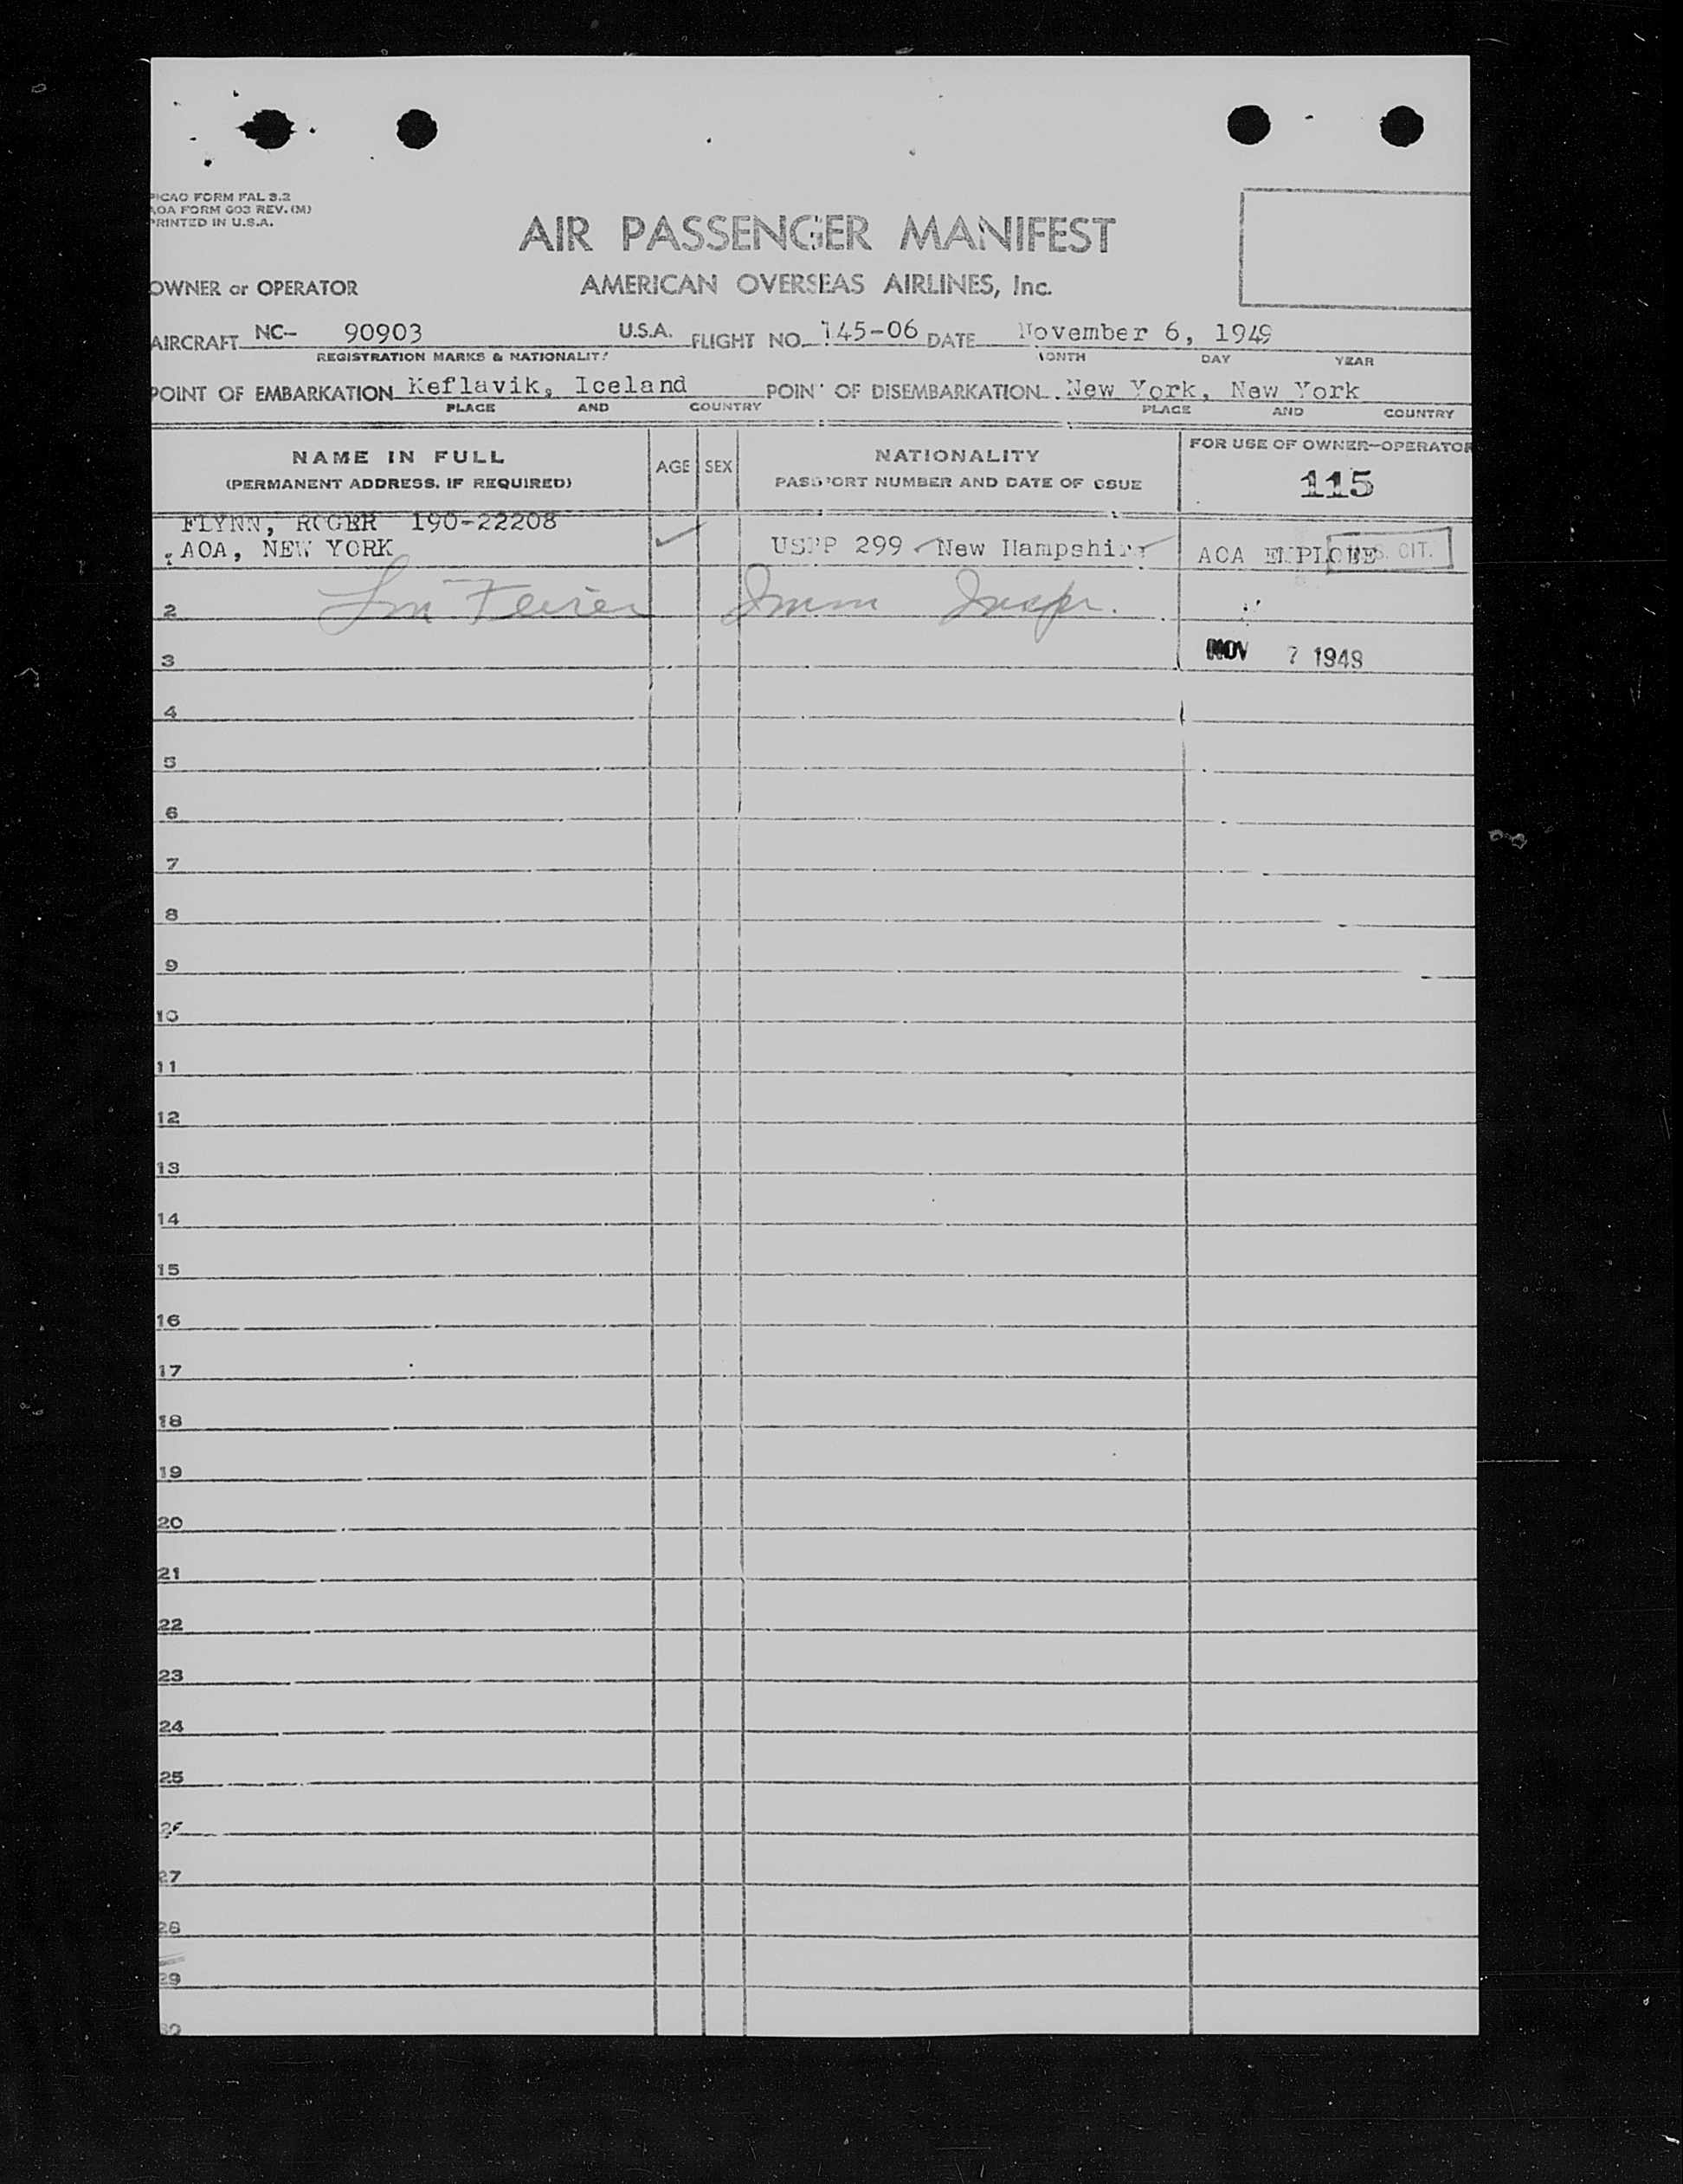 PICAO FORM FAL 3.2
AOA FORM 603 REV. (M)
PRINTED IN U.S.A.
AIR PASSENGER MANIFEST
OWNER or OPERATOR AMERICAN OVERSEAS AIRLINES, Inc.
AIRCRAFT NC- 90903 U.S.A. FLIGHT NO. 145-06 DATE November 6, 1949
REGISTRATION MARKS & NATIONALITY MONTH DAY YEAR
POINT OF EMBARKATION Keflavik, Iceland POINT OF DISEMBARKATION New York, New York
PLACE AND COUNTRY PLACE AND COUNTRY
NAME IN FULL AGE SEX NATIONALITY FOR USE OF OWNER-OPERATOR
(PERMANENT ADDRESS, IF REQUIRED) PASSPORT NUMBER AND DATE OF ISSUE 115
FLYNN, ROGER 190-22208
AOA, NEW YORK USPP 299 New Hampshire AOA EMPLOYEE U.S. CIT.
2 Imm Inspr.
3 NOV 7 1949
4
5
6
7
8
9
10
11
12
13
14
15
16
17
18
19
20
21
22
23
24
25
26
27
28
29
30